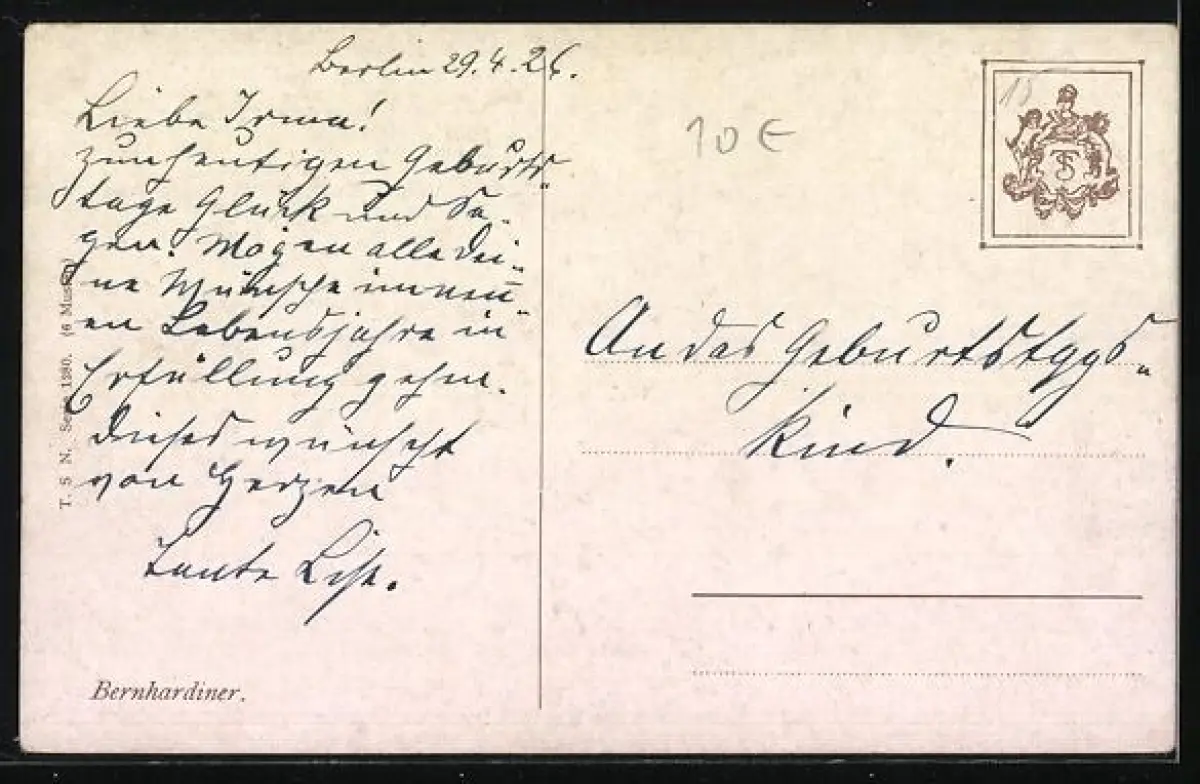 Berlin 29.4.26.
Liebe Irma!
Zum heutigen Geburts-
tage Glück und Se-
gen. Mögen alle Dei-
ne Wünsche im neu-
en Lebensjahre in
Erfüllung gehn.
Dieses wünscht
von Herzen
Tante Lise.
T. S. N. Serie 1280. (6 Muster)
Bernhardiner.
10 €
15
TS
An das Geburtstags-
kind.